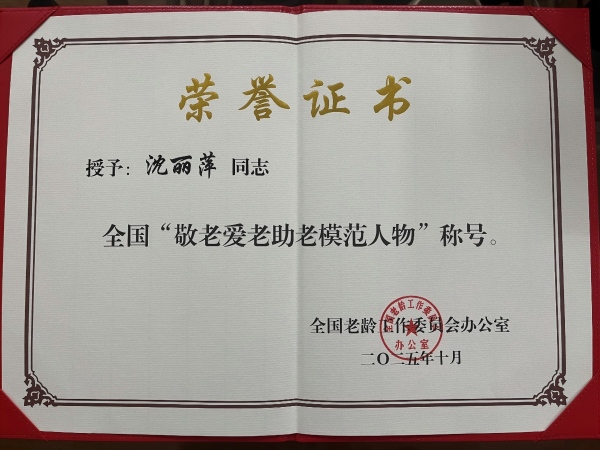 荣誉证书
授予：沈丽萍 同志
全国“敬老爱老助老模范人物”称号。
全国老龄工作委员会办公室
二〇二五年十月
全国老龄工作委员会
办公室